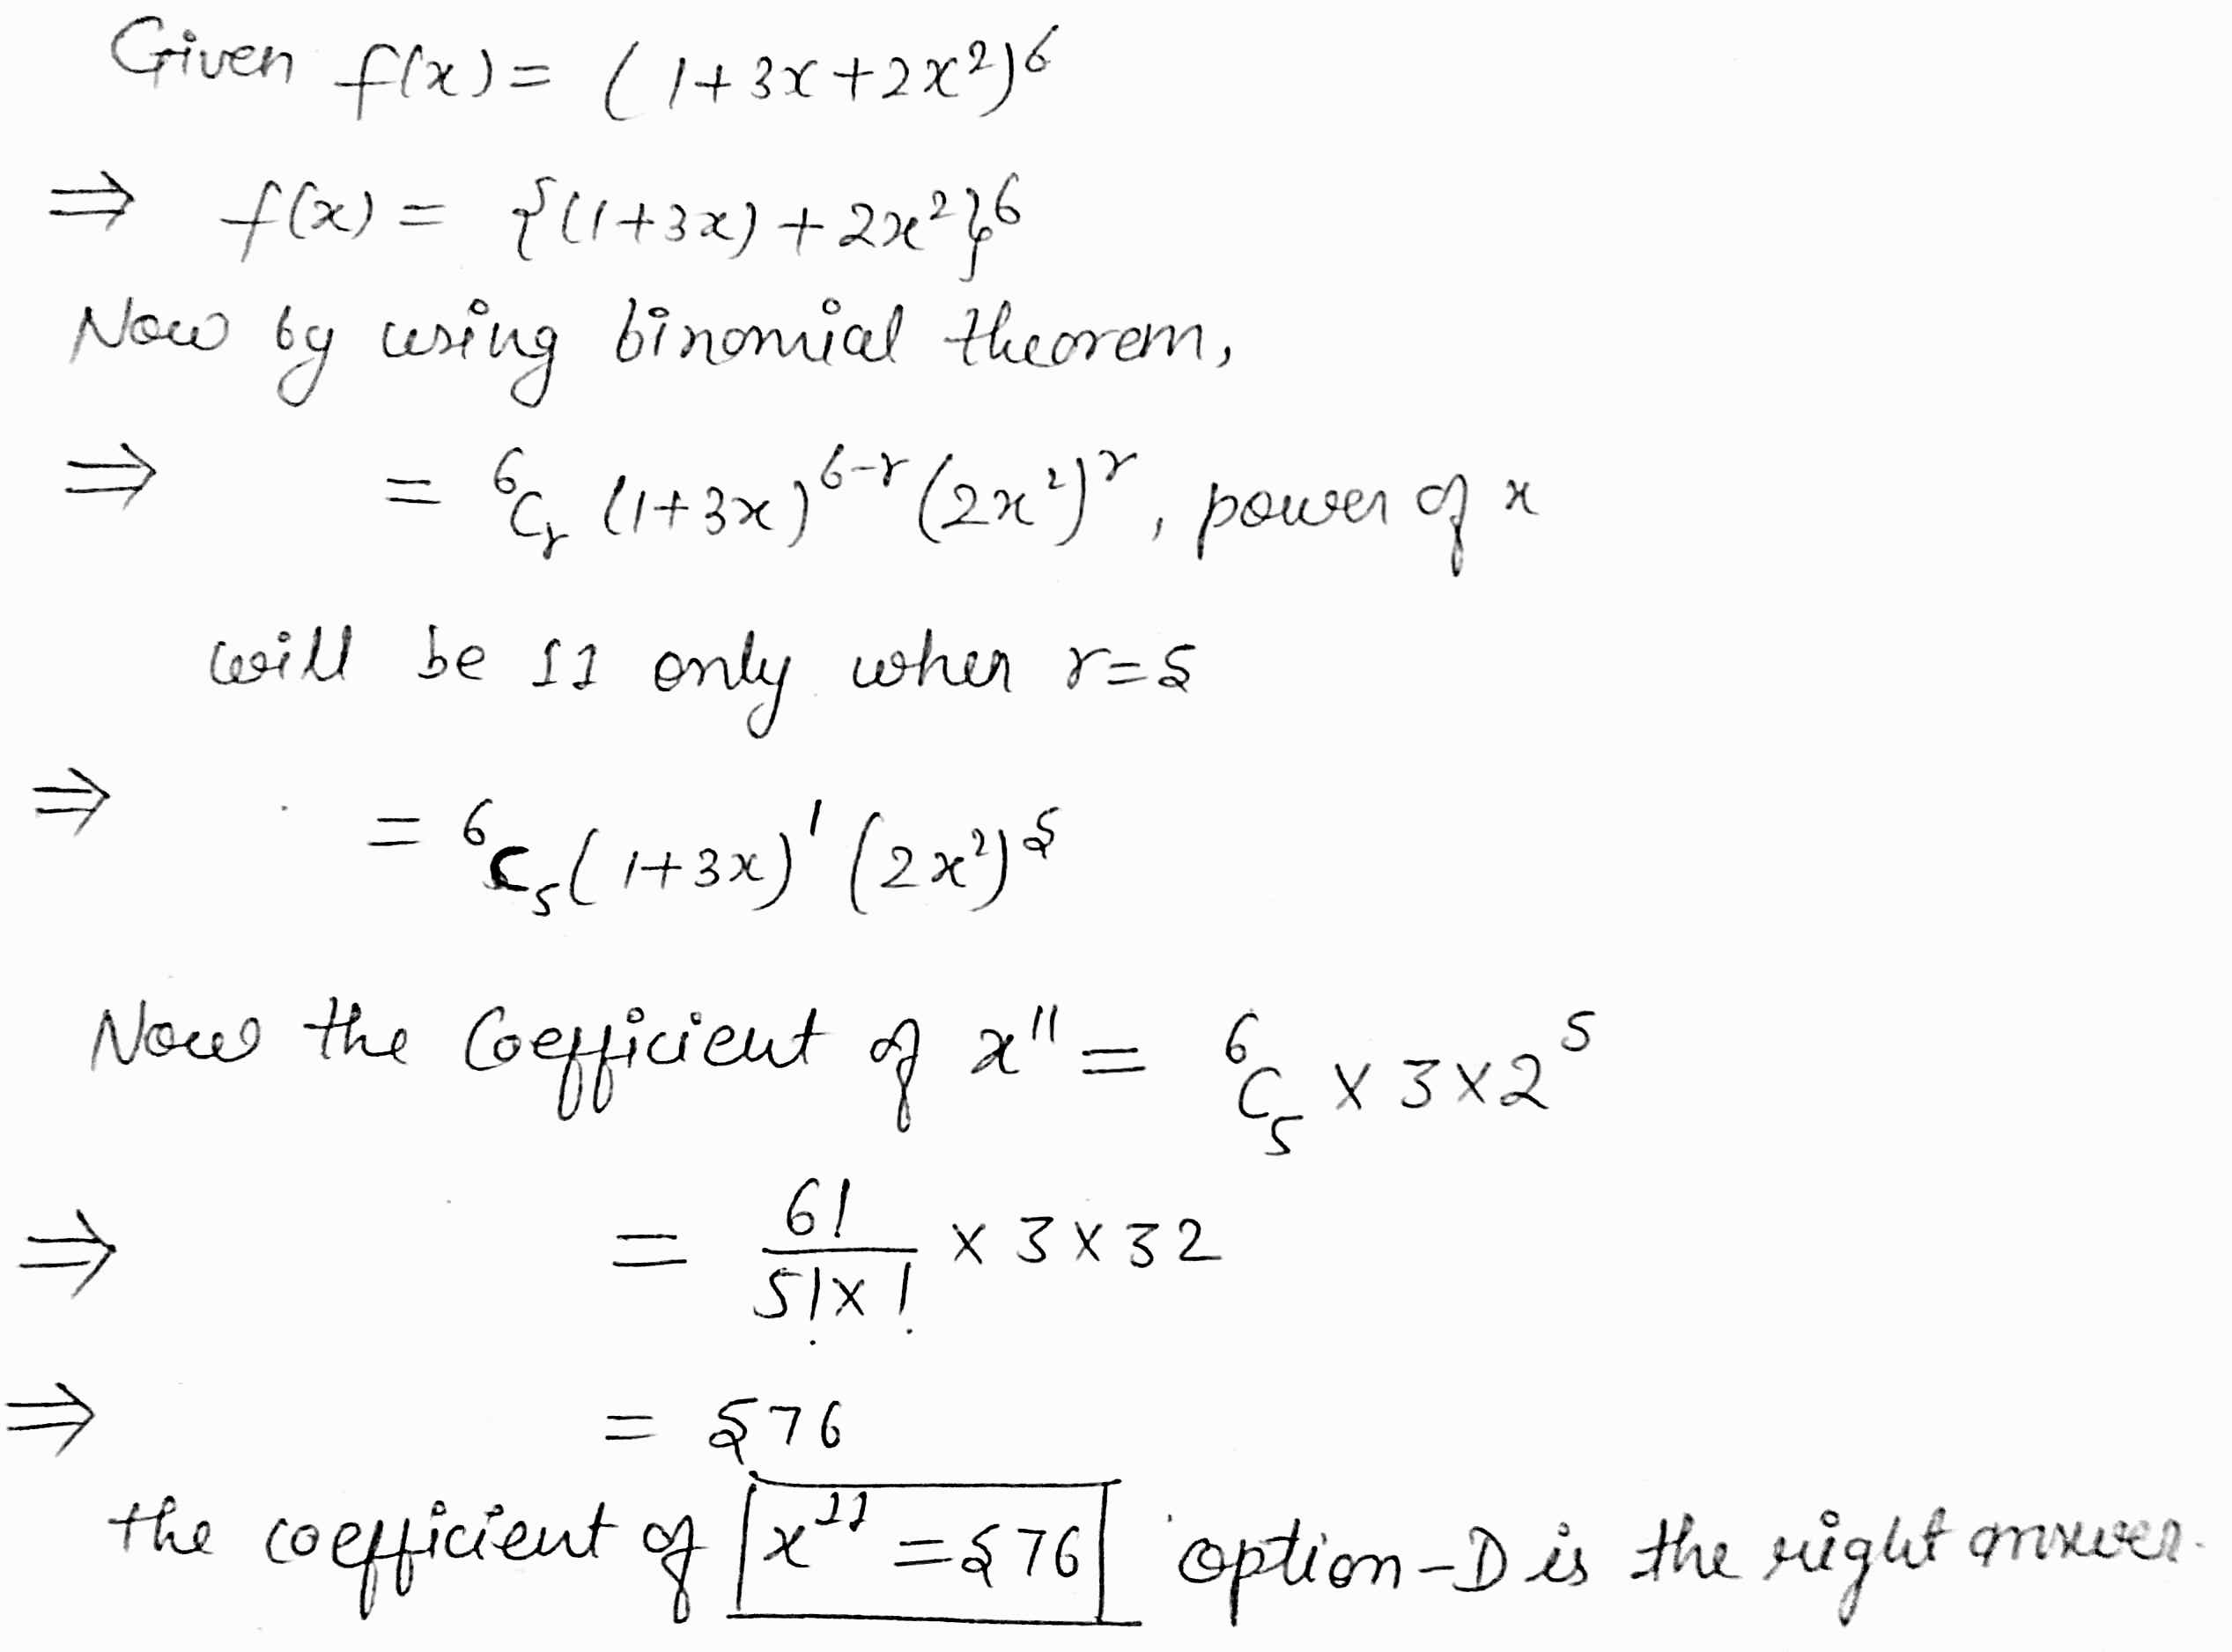 Given f(x) = (1+3x+2x²)⁶
⇒ f(x) = {(1+3x)+2x²}⁶
Now by using binomial theorem,
⇒ = ⁶Cᵣ (1+3x)⁶⁻ʳ (2x²)ʳ, power of x
will be 11 only when r=5
⇒ = ⁶C₅(1+3x)¹ (2x²)⁵
Now the Coefficient of x¹¹ = ⁶C₅ × 3 × 2⁵
⇒ = 6!/5!×! × 3 × 32
⇒ = 576
the coefficient of x¹¹ = 576 option-D is the right answer.